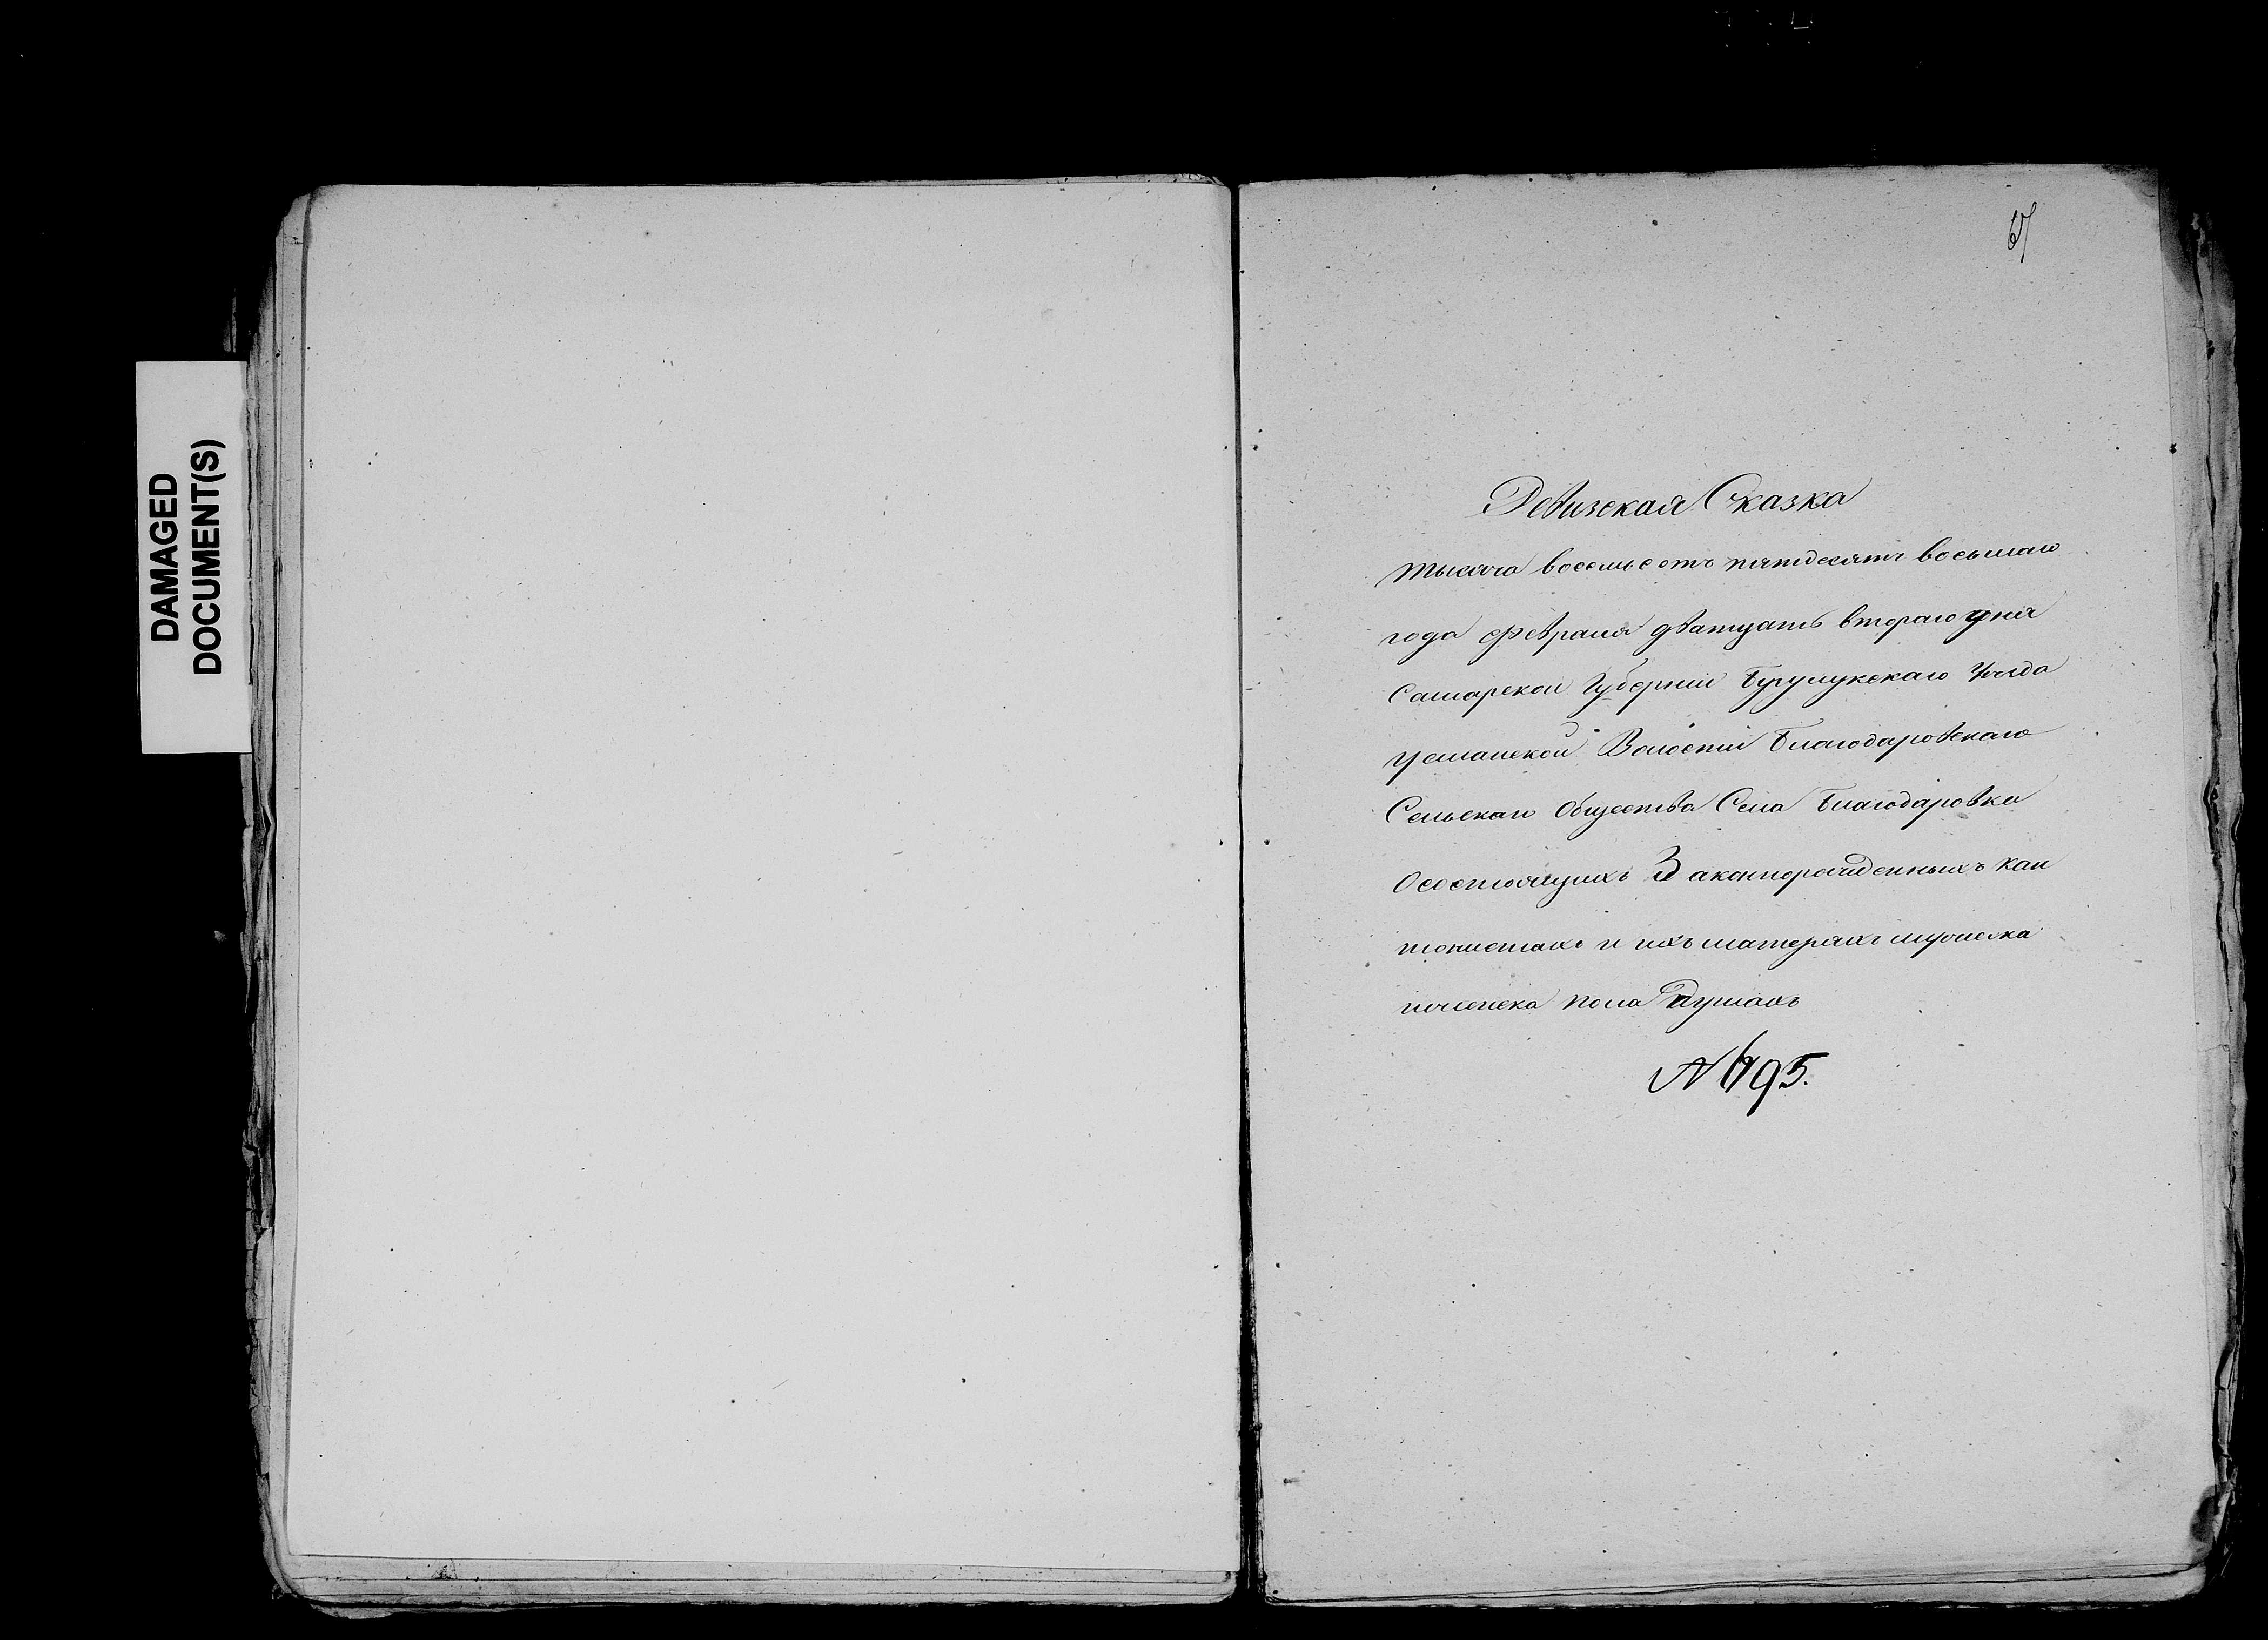 DAMAGED
DOCUMENT(S)
67
Ревизская Сказка
тысяча восемьсотъ пятдесятъ восьмаго
года февраля дватцать втораго дня
Самарской Губернии Бузулукскаго Уезда
Усманской Волости Благодаровскаго
Сельскаго Общества Села Благодаровка
Осостоящихъ Законнорожденныхъ кан
тонистахъ и ихъ матеряхъ мужеска
иженска пола Душахъ
N 495.